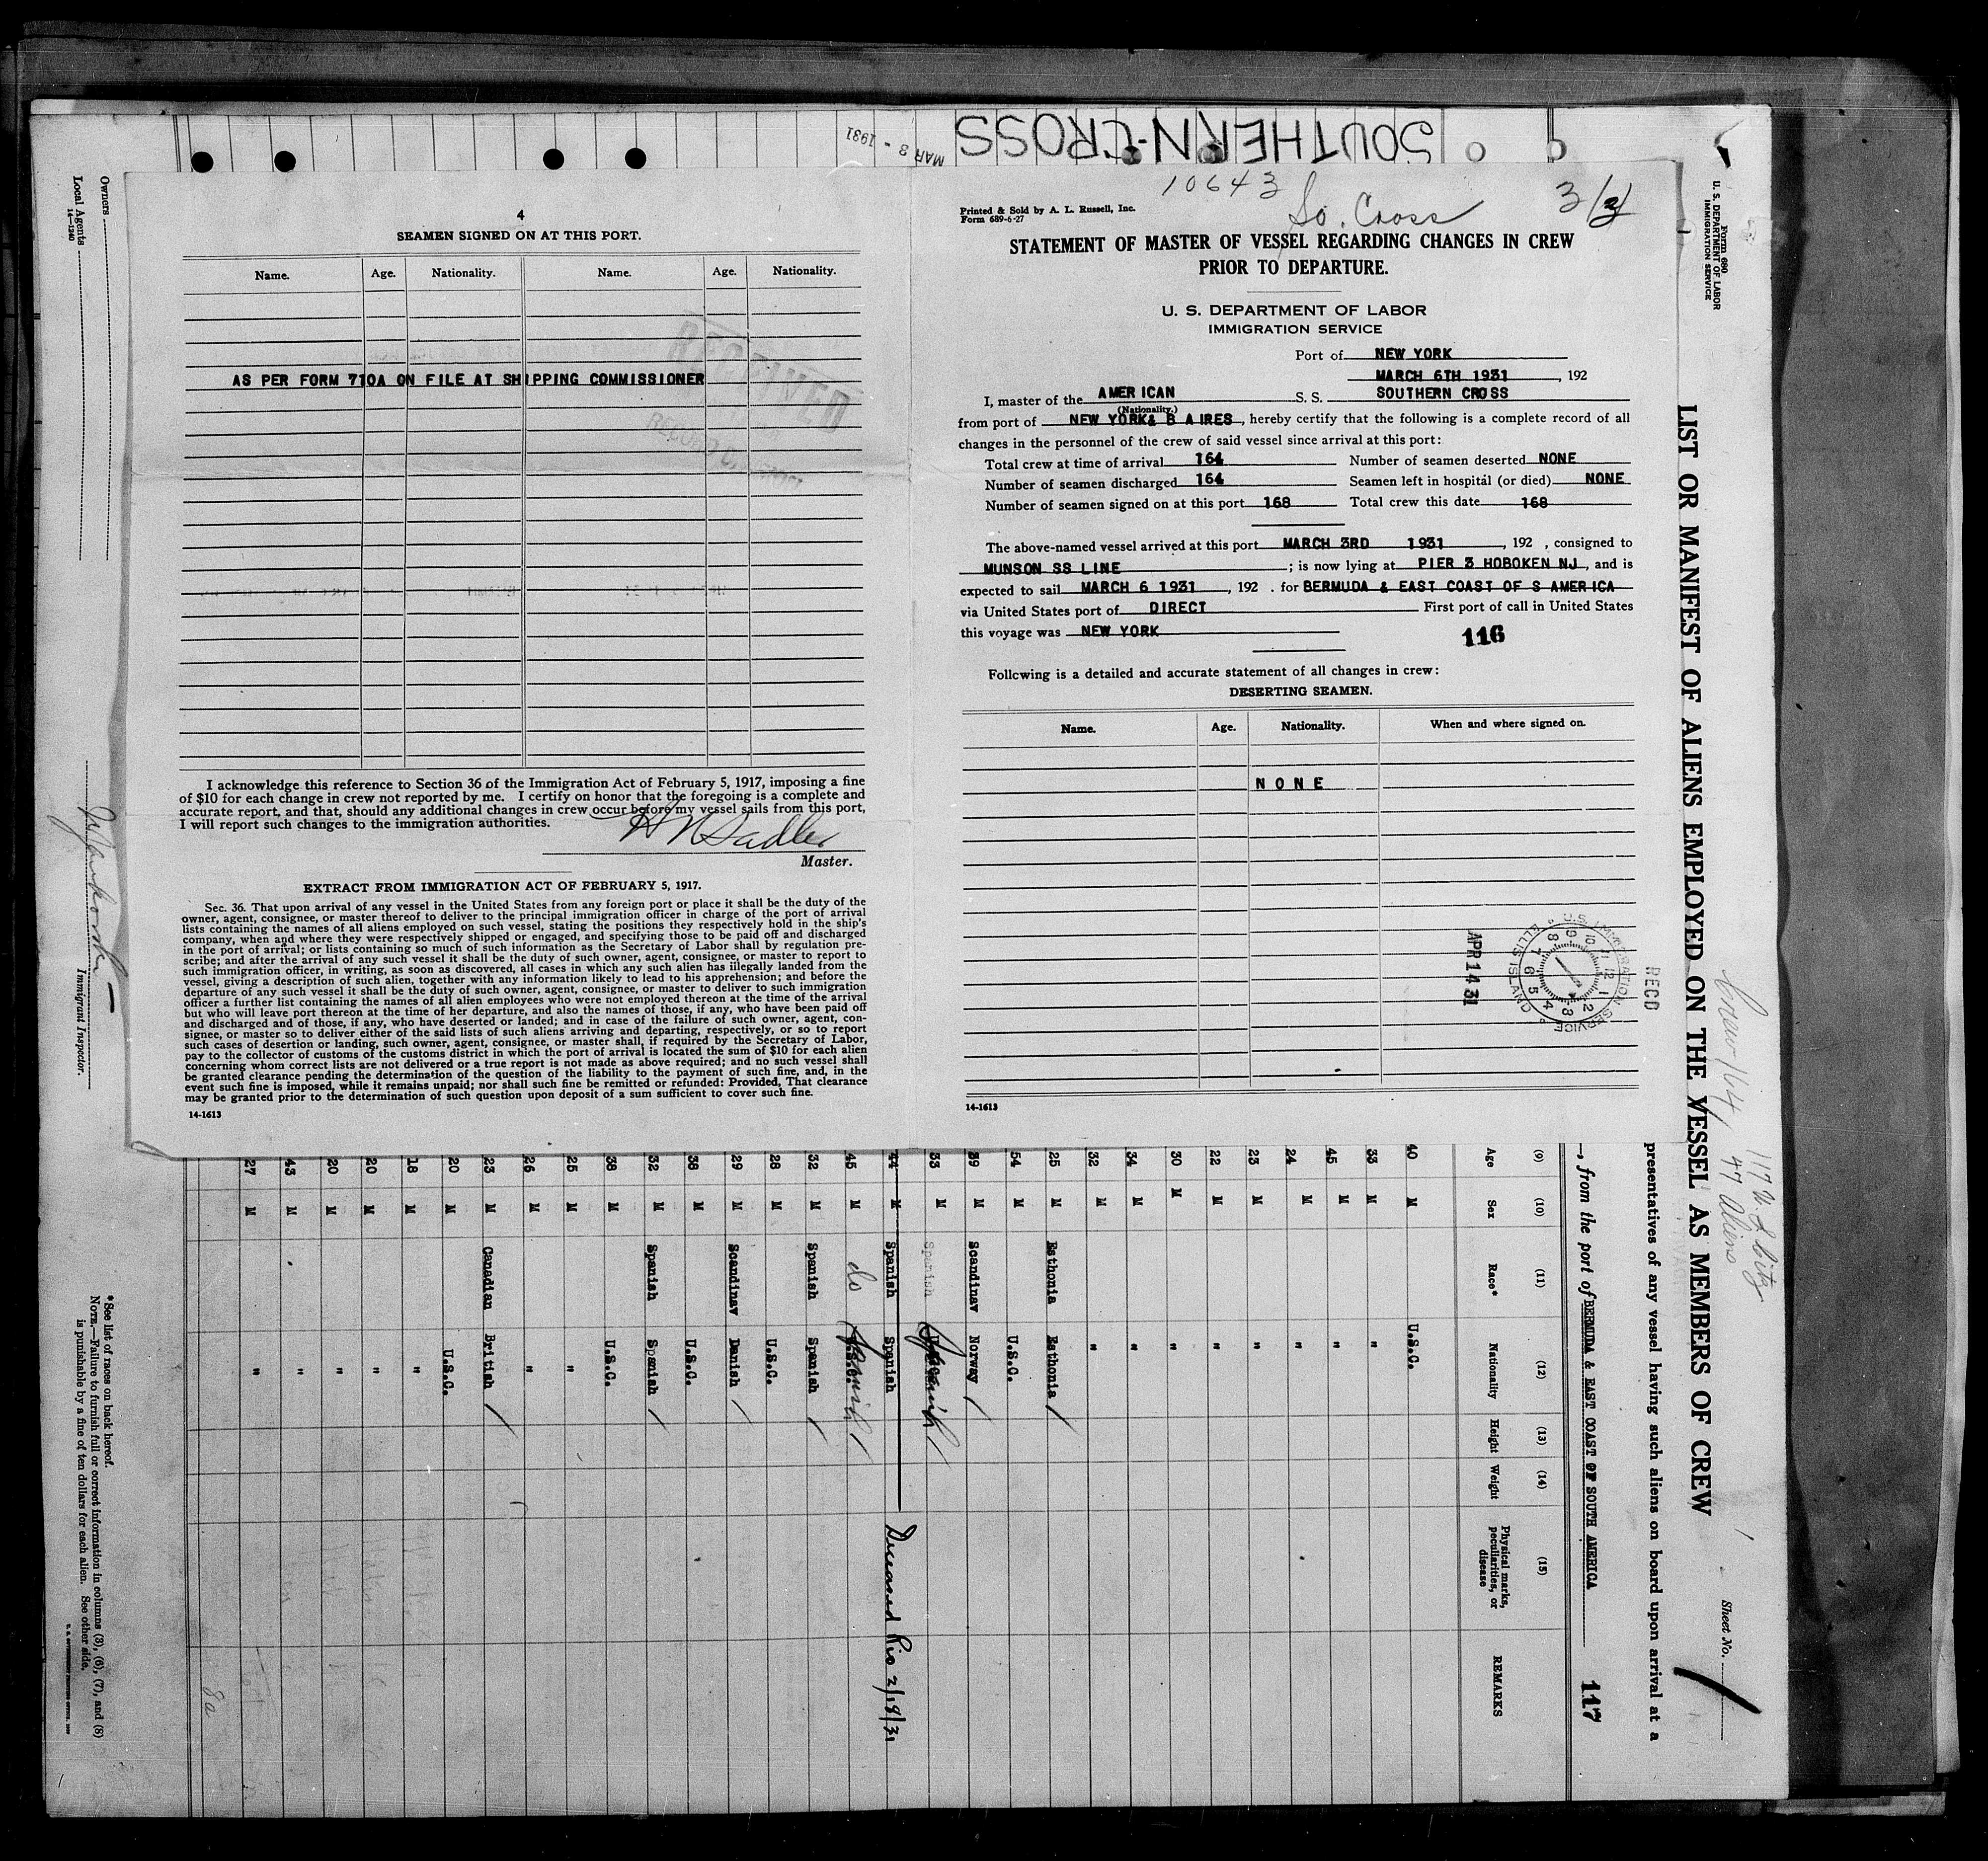 SOUTHERN-CROSS
MAR 3 - 1931
10643
So. Cross
3/3
4
SEAMEN SIGNED ON AT THIS PORT.
Name. Age. Nationality. Name. Age. Nationality.
RECEIVED
AS PER FORM 710A ON FILE AT SHIPPING COMMISSIONER
I acknowledge this reference to Section 36 of the Immigration Act of February 5, 1917, imposing a fine
of $10 for each change in crew not reported by me. I certify on honor that the foregoing is a complete and
accurate report, and that, should any additional changes in crew occur before my vessel sails from this port,
I will report such changes to the immigration authorities.
H N Sadler
Master.
EXTRACT FROM IMMIGRATION ACT OF FEBRUARY 5, 1917.
Sec. 36. That upon arrival of any vessel in the United States from any foreign port or place it shall be the duty of the
owner, agent, consignee, or master thereof to deliver to the principal immigration officer in charge of the port of arrival
lists containing the names of all aliens employed on such vessel, stating the positions they respectively hold in the ship's
company, when and where they were respectively shipped or engaged, and specifying those to be paid off and discharged
in the port of arrival; or lists containing so much of such information as the Secretary of Labor shall by regulation pre-
scribe; and after the arrival of any such vessel it shall be the duty of such owner, agent, consignee, or master to report to
such immigration officer, in writing, as soon as discovered, all cases in which any such alien has illegally landed from the
vessel, giving a description of such alien, together with any information likely to lead to his apprehension; and before the
departure of any such vessel it shall be the duty of such owner, agent, consignee, or master to deliver to such immigration
officer a further list containing the names of all alien employees who were not employed thereon at the time of the arrival
but who will leave port thereon at the time of her departure, and also the names of those, if any, who have been paid off
and discharged and of those, if any, who have deserted or landed; and in case of the failure of such owner, agent, con-
signee, or master so to deliver either of the said lists of such aliens arriving and departing, respectively, or so to report
such cases of desertion or landing, such owner, agent, consignee, or master shall, if required by the Secretary of Labor,
pay to the collector of customs of the customs district in which the port of arrival is located the sum of $10 for each alien
concerning whom correct lists are not delivered or a true report is not made as above required; and no such vessel shall
be granted clearance pending the determination of the question of the liability to the payment of such fine, and, in the
event such fine is imposed, while it remains unpaid; nor shall such fine be remitted or refunded: Provided, That clearance
may be granted prior to the determination of such question upon deposit of a sum sufficient to cover such fine.
14-1613
Printed & Sold by A. L. Russell, Inc.
Form 689-6-27
STATEMENT OF MASTER OF VESSEL REGARDING CHANGES IN CREW
PRIOR TO DEPARTURE.
U. S. DEPARTMENT OF LABOR
IMMIGRATION SERVICE
Port of NEW YORK
MARCH 6TH 1931, 192
I, master of the AMERICAN S. S. SOUTHERN CROSS
(Nationality.)
from port of NEW YORK& B AIRES, hereby certify that the following is a complete record of all
changes in the personnel of the crew of said vessel since arrival at this port:
Total crew at time of arrival 164 Number of seamen deserted NONE
Number of seamen discharged 164 Seamen left in hospital (or died) NONE
Number of seamen signed on at this port 168 Total crew this date 168
The above-named vessel arrived at this port MARCH 3RD 1931, 192 , consigned to
MUNSON SS LINE ; is now lying at PIER 3 HOBOKEN NJ, and is
expected to sail MARCH 6 1931, 192 . for BERMUDA & EAST COAST OF S AMERICA
via United States port of DIRECT First port of call in United States
this voyage was NEW YORK
116
Following is a detailed and accurate statement of all changes in crew:
DESERTING SEAMEN.
Name. Age. Nationality. When and where signed on.
NONE
RECD
U.S. IMMIGRATION SERVICE ELLIS ISLAND
APR 14 31
14-1613
Form 680
U. S. DEPARTMENT OF LABOR
IMMIGRATION SERVICE
Crew 164
117 U S Citz
47 Aliens
Sheet No.
LIST OR MANIFEST OF ALIENS EMPLOYED ON THE VESSEL AS MEMBERS OF CREW
presentatives of any vessel having such aliens on board upon arrival at a
, from the port of BERMUDA & EAST COAST OF SOUTH AMERICA
117
(9) (10) (11) (12) (13) (14) (15)
Age Sex Race* Nationality Height Weight Physical marks, peculiarities, or disease REMARKS
40 M U.S.C.
33 M "
45 M "
24 M "
23 M "
22 M "
30 M "
34 M "
32 M "
25 M Esthonia Esthonia
54 M U.S.C.
39 M Scandinav Norway
33 M Spanish Spanish
44 M Spanish Spanish Deceased Rio 2/18/31
45 M do Spanish
32 M Spanish Spanish
28 M U.S.C.
29 M Scandinav Danish
38 M U.S.C.
32 M Spanish Spanish
38 M U.S.C.
25 M "
26 M "
23 M Canadian British
20 M U.S.C.
18 M "
20 M "
20 M "
43 M "
27 M "
8a
Owners
Local Agents
14-1240
Immigrant Inspector.
*See list of races on back hereof.
NOTE.—Failure to furnish full or correct information in columns (3), (6), (7), and (8)
is punishable by a fine of ten dollars for each alien. See other side.